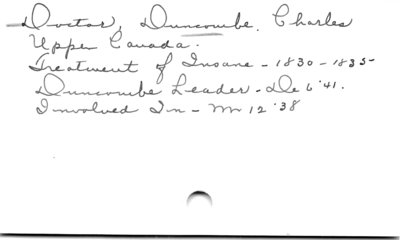 Doctor, Duncombe, Charles
Upper Canada.
Treatment of Insane - 1830 - 1835-
Duncombe Leader - De 6 '41.
Involved In - Mr 12 '38